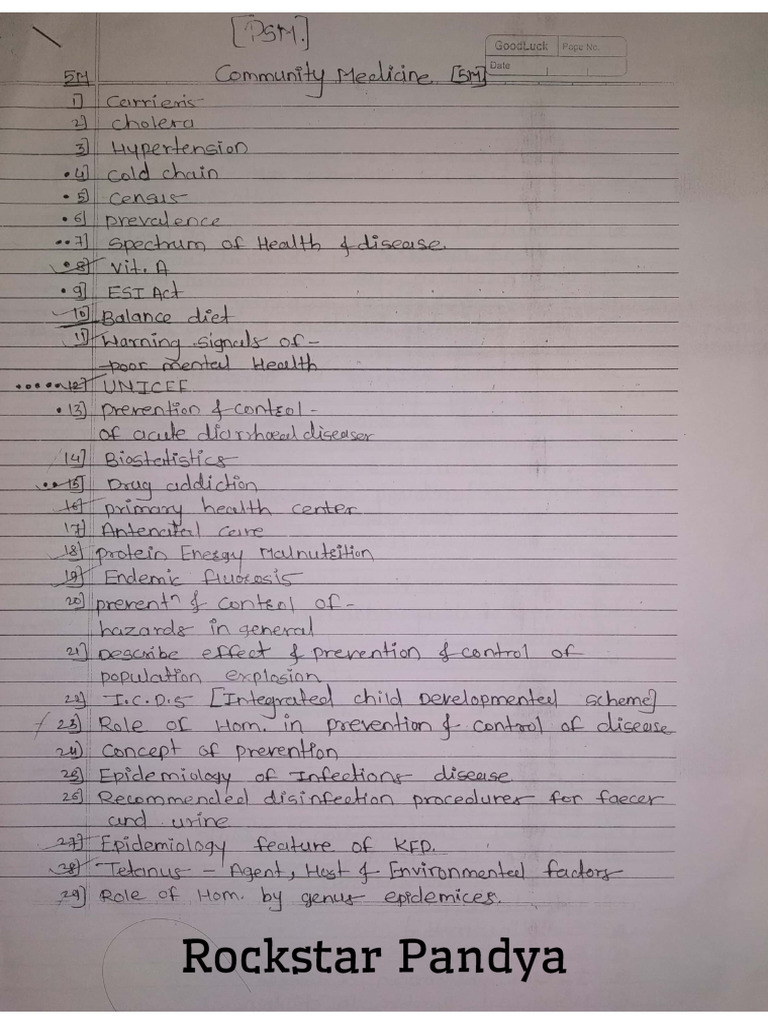 [PSM.]
GoodLuck Page No.
Date
5M Community Medicine [5M]
1] Carriers
2] Cholera
3] Hypertension
•4] Cold chain
•5] Census
•6] prevalence
••7] Spectrum of Health & disease.
•8] Vit. A
•9] ESI Act
10] Balance diet
11] Warning signals of -
-poor mental Health
•••••12] UNICEF
•13] prevention & control -
of acute diarrhoeal diseases
14] Biostatistics
••15] Drug addiction
16] primary health center
17] Antenatal care
18] protein Energy Malnutrition
19] Endemic fluorosis
20] preventⁿ & control of -
hazards in general
21] Describe effect & prevention & control of
population explosion
22] I.C.D.S [Integrated child Developmental scheme]
23] Role of Hom. in prevention & control of disease
24] Concept of prevention
25] Epidemiology of Infections disease
26] Recommended disinfection procedures for faeces
and urine
27] Epidemiology feature of KFD.
28] Tetanus - Agent, Host & Environmental factors
29] Role of Hom. by genus epidemices.
Rockstar Pandya